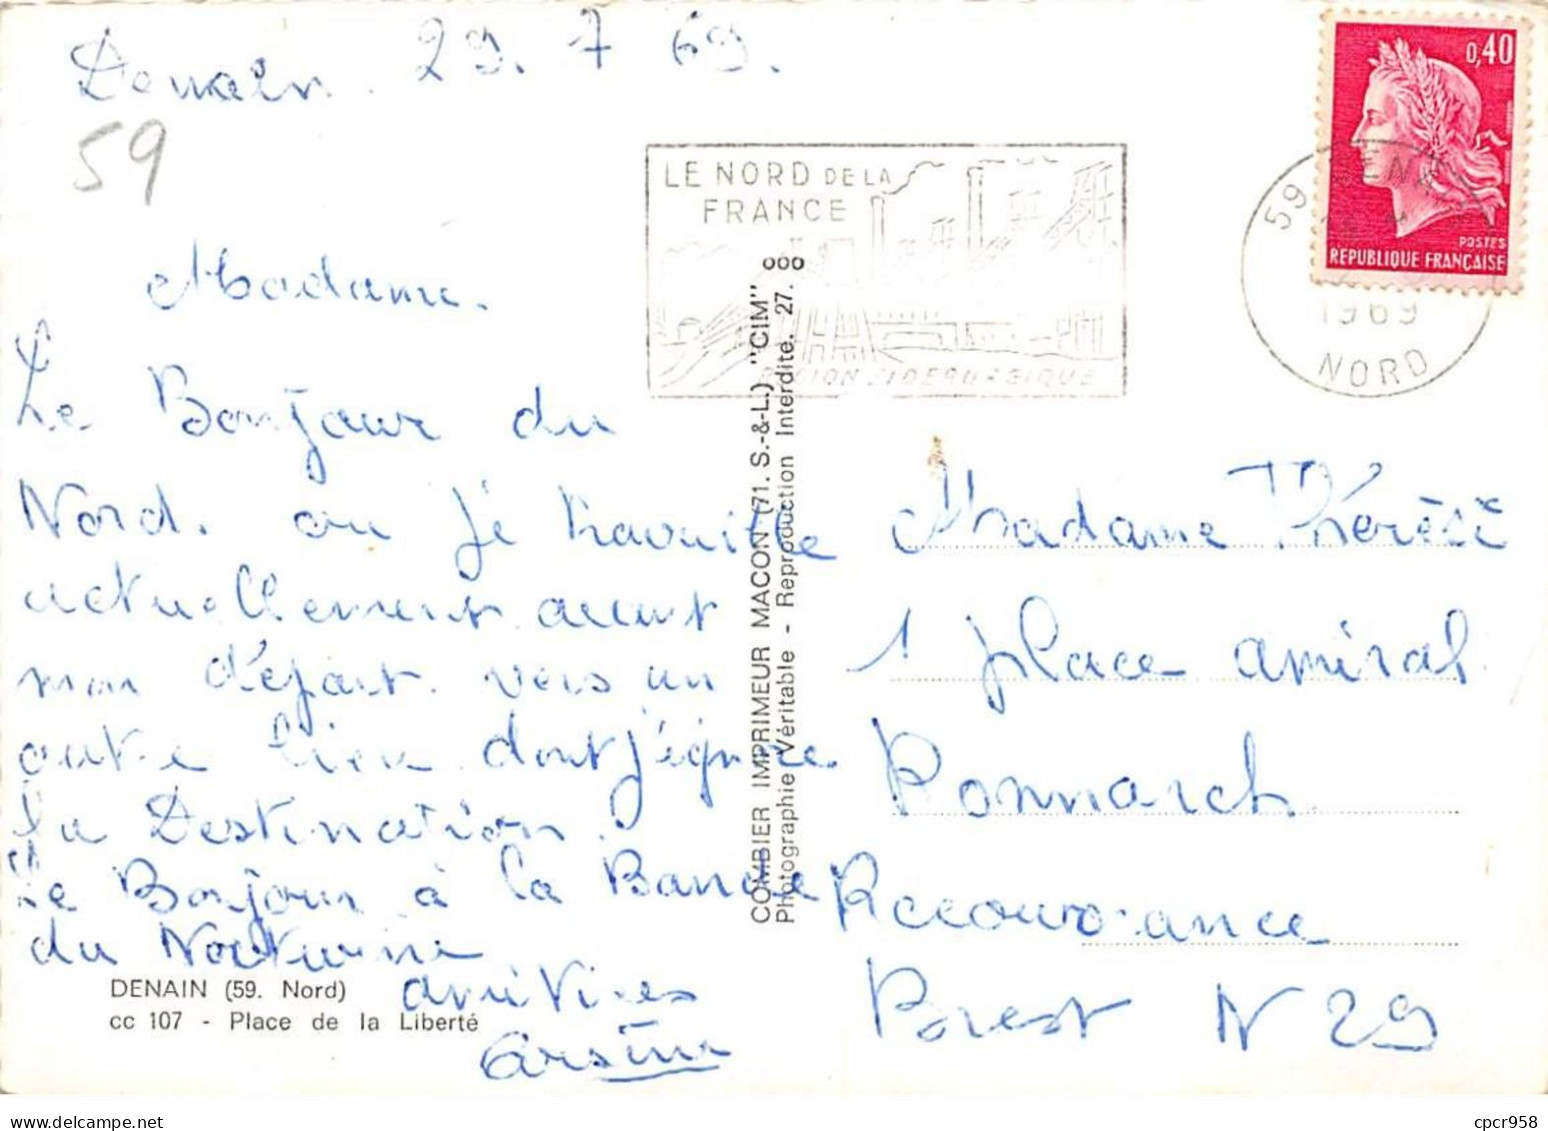 Denain. 29. 7 69.
59
0,40
POSTES
REPUBLIQUE FRANÇAISE
LE NORD DE LA
FRANCE
59 DENA
1969
NORD
Madame.
Le Bonjour du
Nord. ou je travaille
actuellement avant
mon départ vers un
autre lieu dont j'ignore
la Destination.
Le Bonjour à la Bande
du Nocturne
amitiés
Arsène
DENAIN (59. Nord)
cc 107 - Place de la Liberté
COMBIER IMPRIMEUR MACON (71. S.-&-L.) "CIM"
Photographie Véritable - Reproduction Interdite. 27.
Madame Thérèse
1 place amiral
Ronnarch
Recouvrance
Brest N 29
cpcr958